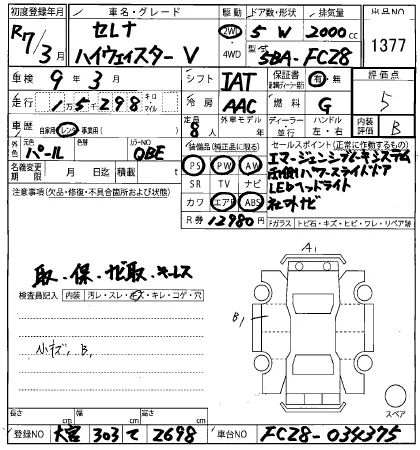 初度登録年月 車名・グレード 駆動 ドア数・形状 排気量 出品NO
R7/3月 セレナ ハイウェイスター V 2WD 4WD 5 W 2000cc 1377
型式 5BA-FCZ8
車検 9年3月 シフト IAT 保証書 有・無 評価点
走行 1万5千298 キロ・マイル 冷房 AAC 燃料 G 5
車歴 自家用 レンタ 事業用( ) 定員 8人 外車モデル 年 ディーラー 並行 ハンドル 左・右 内装評価 B
外色 元色 パール 色替 カラーNO QBE
名義変更期限 月 日迄 積載 t
装備品(純正品に限る) セールスポイント(正常に作動するもの)
PS PW AW エマージェンシブレーキシステム
SR TV ナビ 両側パワースライドドア
カワ エアB ABS LEDヘッドライト
R券 12980円 社外ナビ
注意事項(欠品・修復・不具合箇所および状態)
Fガラス トビ石・キズ・ヒビ・ワレ・リペア跡
取・保・ナビ取・キーレス
検査員記入 内装 汚レ・スレ・キズ・キレ・コゲ・穴
A1
B1
小キズ, B1
スペア
長さ cm 幅 cm 高さ cm
登録NO 大宮 303 て 2698 車台NO FCZ8-034375